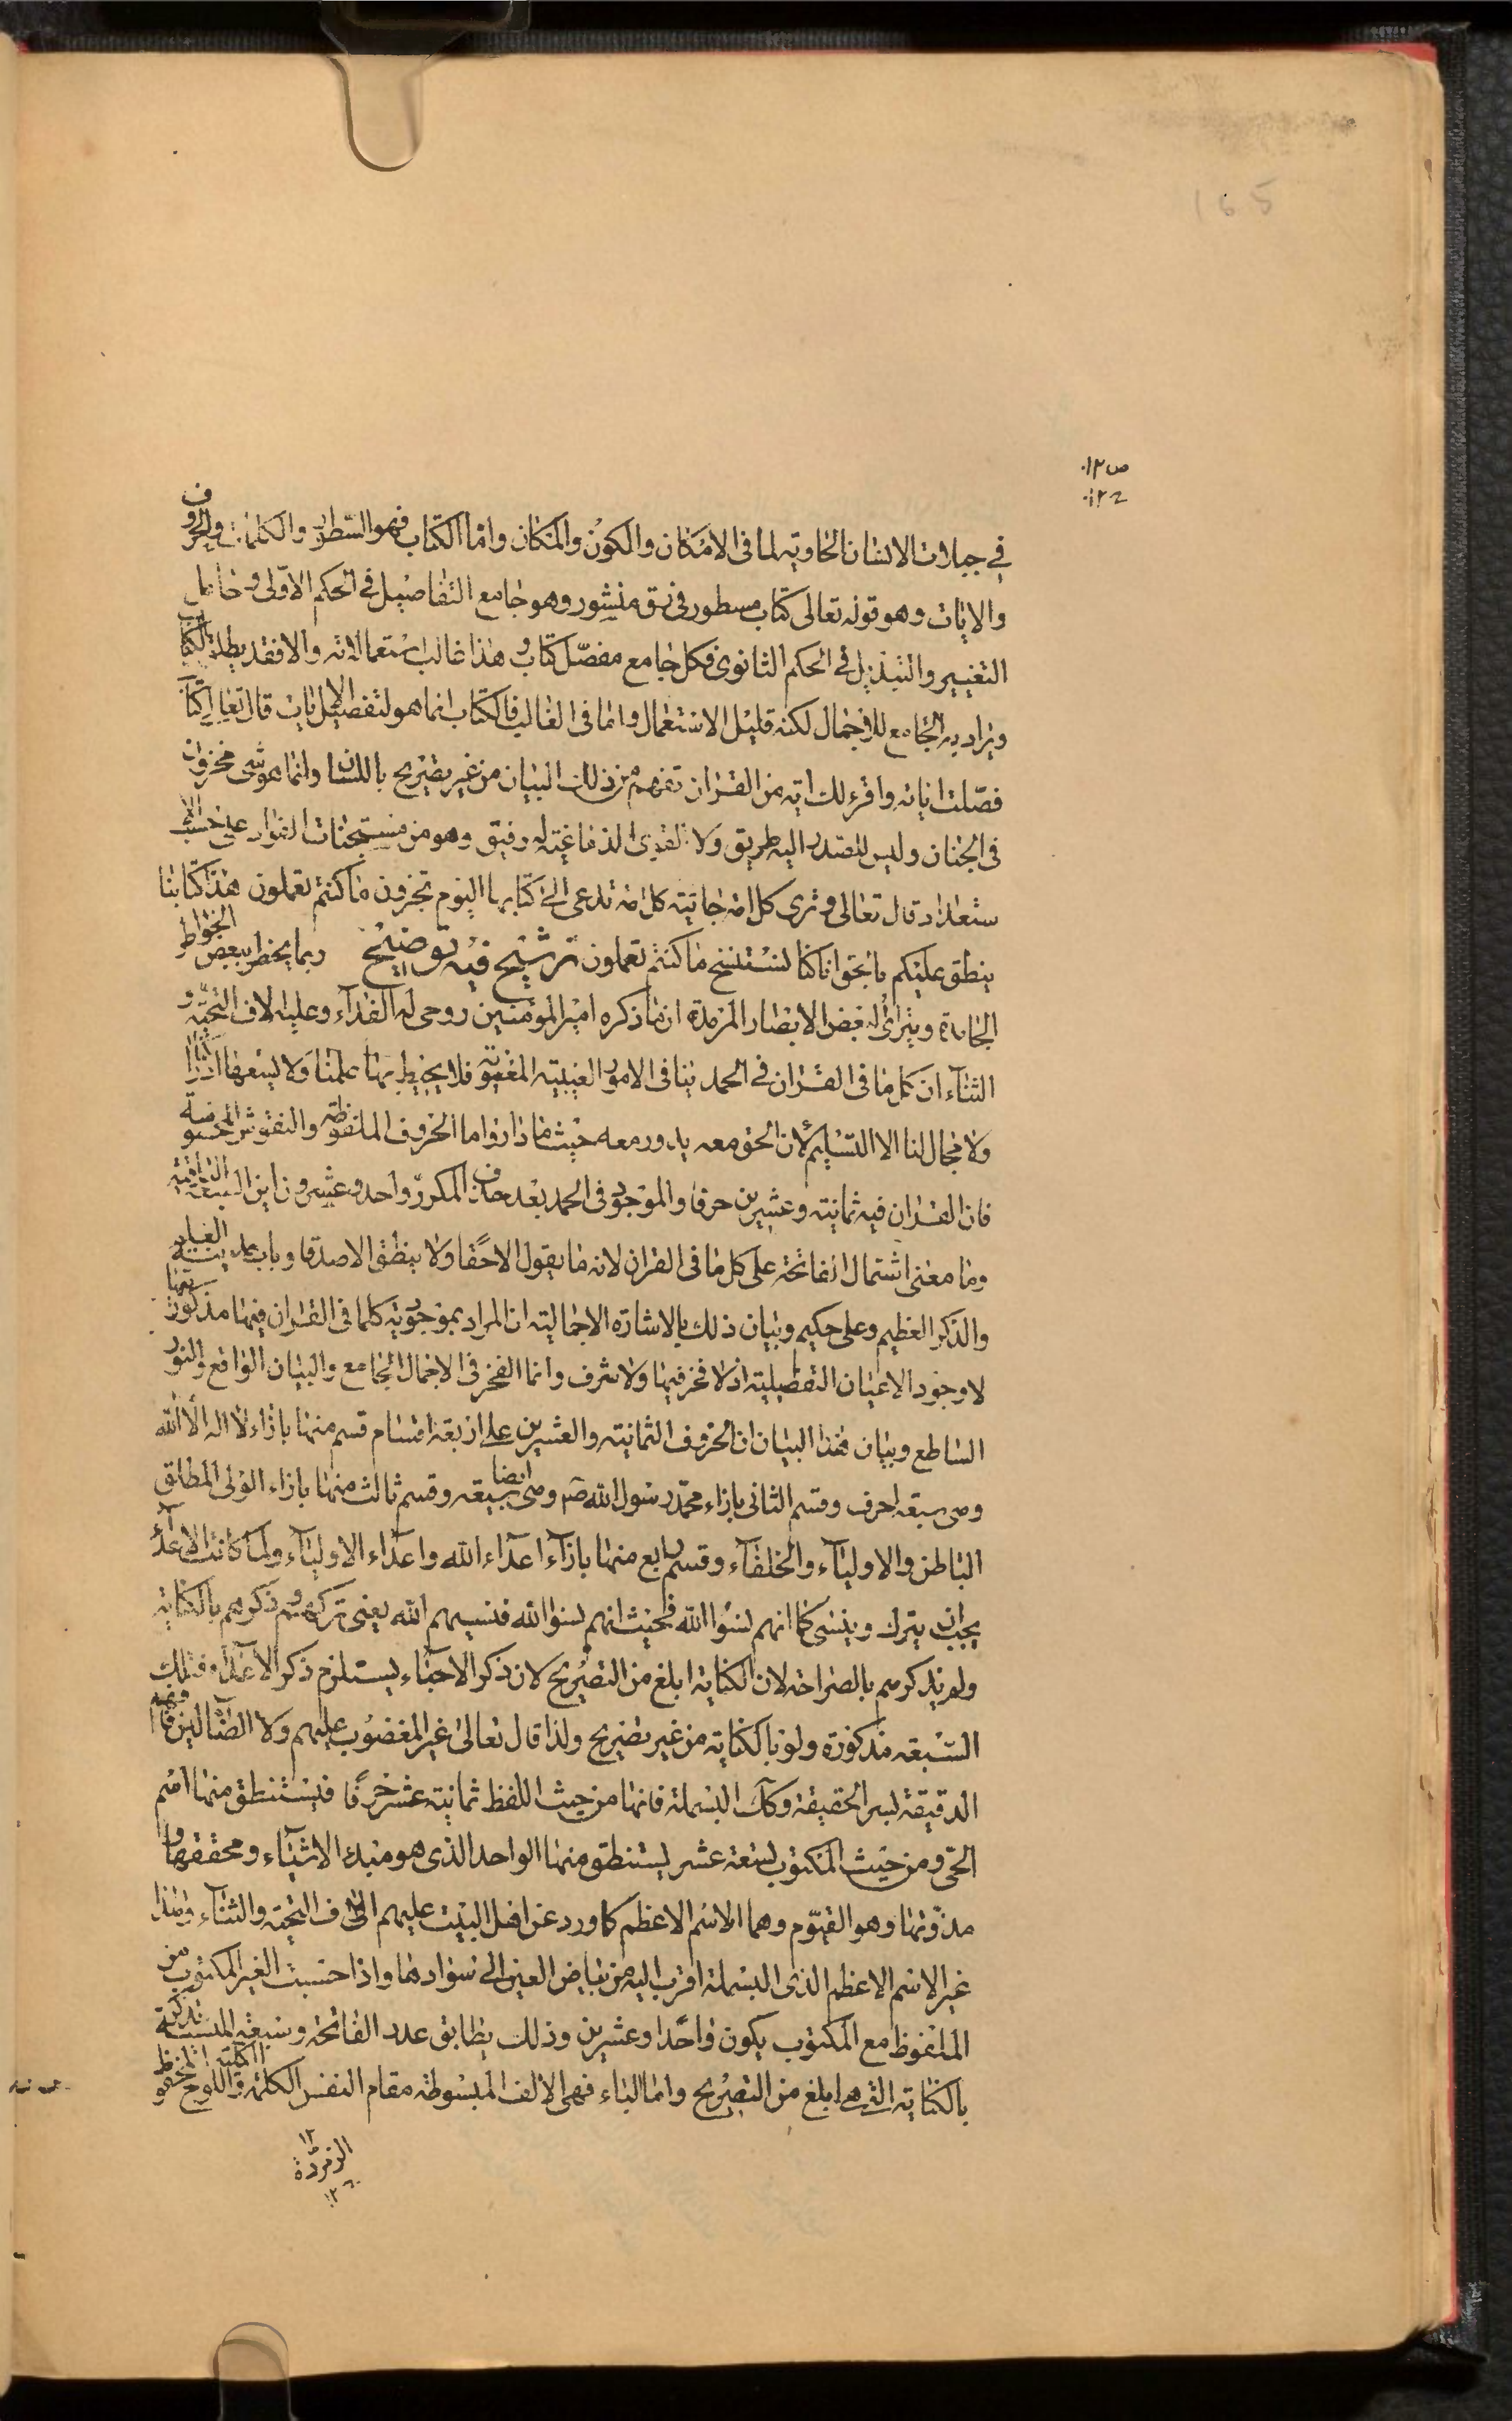 165
ص١٢
١٢ح
في جبلات الانسان الحاوية لما فى الامكان والكون والمكان واما الكتاب فهو السطور والكلمات والحروف
والايات وهو قوله تعالى كتاب مسطور فى رق منشور وهو جامع التفاصيل في الحكم الاولى وحامل
التغيير والتبديل في الحكم الثانوى فكل جامع مفصل كتاب وهذا غالب استعمالاته والا فقد يطلق الكتاب
ويراد به الجامع للاجمال لكنه قليل الاستعمال واما فى الغالب فالكتاب انما هو لتفصيل الاجمال قال تعالى كتاب
فصلت اياته واقرء لك اية من القران تفهم من ذلك البيان من غير تصريح باللسان وانما هو شى مخزون
فى الجنان وليس للصدر اليه طريق ولا رفيق وهو من مستجنات على حسب الا
ستعداد قال تعالى وترى كل امة جاثية كل امة تدعى الى كتابها اليوم تجزون ما كنتم تعملون هذا كتابنا
ينطق عليكم بالحق انا كنا نستنسخ ما كنتم تعملون ترشيح فيه توضيح ربما يخطر ببعض الخواطر
الجامدة ويترائ لبعض الابصار المرمدة ان ما ذكره امير المؤمنين روحى له الفداء وعليه الاف التحية و
الثناء ان كل ما فى القران في الحمد ينافى الامور الغيبية المعنوية فلا يحيط بها علمنا ولا يسعها ادراكنا
ولا مجال لنا الا التسليم لان الحق معه يدور معه حيث ما دار واما الحروف الملفوظة والنقوش المحسوسة
فان القران فيه ثمانية وعشرين حرفا والموجود فى الحمد بعد حذف المكرر واحد وعشرون اين السبعة الباقية
وما معنى اشتمال الفاتحة على كل ما فى القران لانه ما يقول الا حقا ولا ينطق الا صدقا
والذكر العظيم وعلى حكيم وبيان ذلك بالاشارة الاجمالية ان المراد بموجودية كلما فى القران فيها مذكوريتها
لا وجود الاعيان التفصيلية اذ لا فخر فيها ولا شرف وانما الفخر فى الاجمال الجامع والبيان الواقع والنور
الساطع وبيان هذا البيان ان الحروف الثمانية والعشرين على اربعة اقسام قسم منها بازاء لا اله الا الله
وهى سبعة احرف وقسم الثانى بازاء محمد رسول الله ص وهى ايضا سبعة وقسم ثالث منها بازاء الولى المطلق
الباطن والاولياء والخلفاء وقسم رابع منها بازاء اعداء الله واعداء الاولياء ولما كانت الاعداء
يجب ان يترك وينسى كما انهم نسوا الله فحيث انهم نسوا الله فنسيهم الله يعنى تركهم وذكرهم بالكناية
ولم يذكرهم بالصراحة لان الكناية ابلغ من التصريح لان ذكر الاحباء يستلزم ذكر الاعداء فتلك
السبعة مذكورة ولو بالكناية من غير تصريح ولذا قال تعالى غير المغضوب عليهم ولا الضالين فافهم
الدقيقة بسر الحقيقة وكك البسملة فانها من حيث اللفظ ثمانية عشر حرفا فيستنطق منها اسم
الحى ومن حيث المكتوب تسعة عشر يستنطق منها الواحد الذى هو مبدء الاشياء ومحققها و
مذوتها وهو القيوم وهما الاسم الاعظم كما ورد عن اهل البيت عليهم الاف التحية والثناء وهذا
غير الاسم الاعظم الذى البسملة اقرب اليه من بياض العين الى سوادها واذا حسبت الغير المكتوب من
الملفوظ مع المكتوب يكون واحدا وعشرين وذلك يطابق عدد الفاتحة وسبعة
بالكناية التى هى ابلغ من التصريح واما الباء فهى الالف المبسوطة مقام النفس الكلية واللوح المحفوظ
١٢
الزمردة
١٢